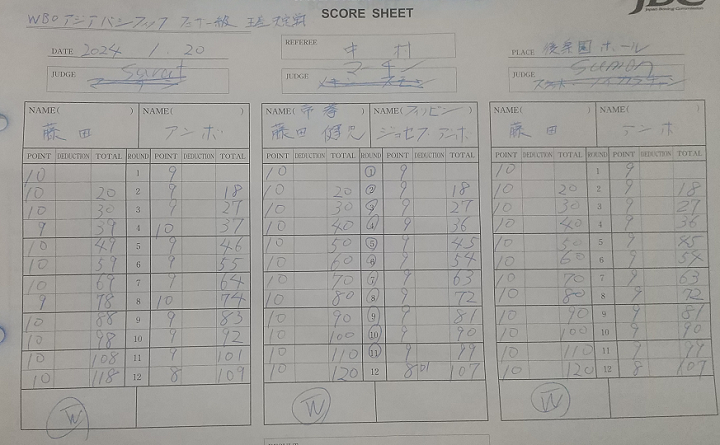 SCORE SHEET
WBOアジアパシフィック フェザー級 王座決定戦
DATE 2024 / 1. 20
REFEREE 中 村
PLACE 後楽園ホール
JUDGE Surat
JUDGE マーチン
JUDGE
NAME( ) 藤田 NAME( ) アンボ
POINT DEDUCTION TOTAL ROUND POINT DEDUCTION TOTAL
10 1 9
10 20 2 9 18
10 30 3 9 27
9 39 4 10 37
10 49 5 9 46
10 59 6 9 55
10 69 7 9 64
9 78 8 10 74
10 88 9 9 83
10 98 10 9 92
10 108 11 9 101
10 118 12 8 109
W
NAME(帝拳) 藤田 健児 NAME(フィリピン) ジョセフ アンボ
POINT DEDUCTION TOTAL ROUND POINT DEDUCTION TOTAL
10 1 9
10 20 2 9 18
10 30 3 9 27
10 40 4 9 36
10 50 5 9 45
10 60 6 9 54
10 70 7 9 63
10 80 8 9 72
10 90 9 9 81
10 100 10 9 90
10 110 11 9 99
10 120 12 8 107
W
NAME( ) 藤田 NAME( ) アンボ
POINT DEDUCTION TOTAL ROUND POINT DEDUCTION TOTAL
10 1 9
10 20 2 9 18
10 30 3 9 27
10 40 4 9 36
10 50 5 9 45
10 60 6 9 54
10 70 7 9 63
10 80 8 9 72
10 90 9 9 81
10 100 10 9 90
10 110 11 9 99
10 120 12 8 107
W